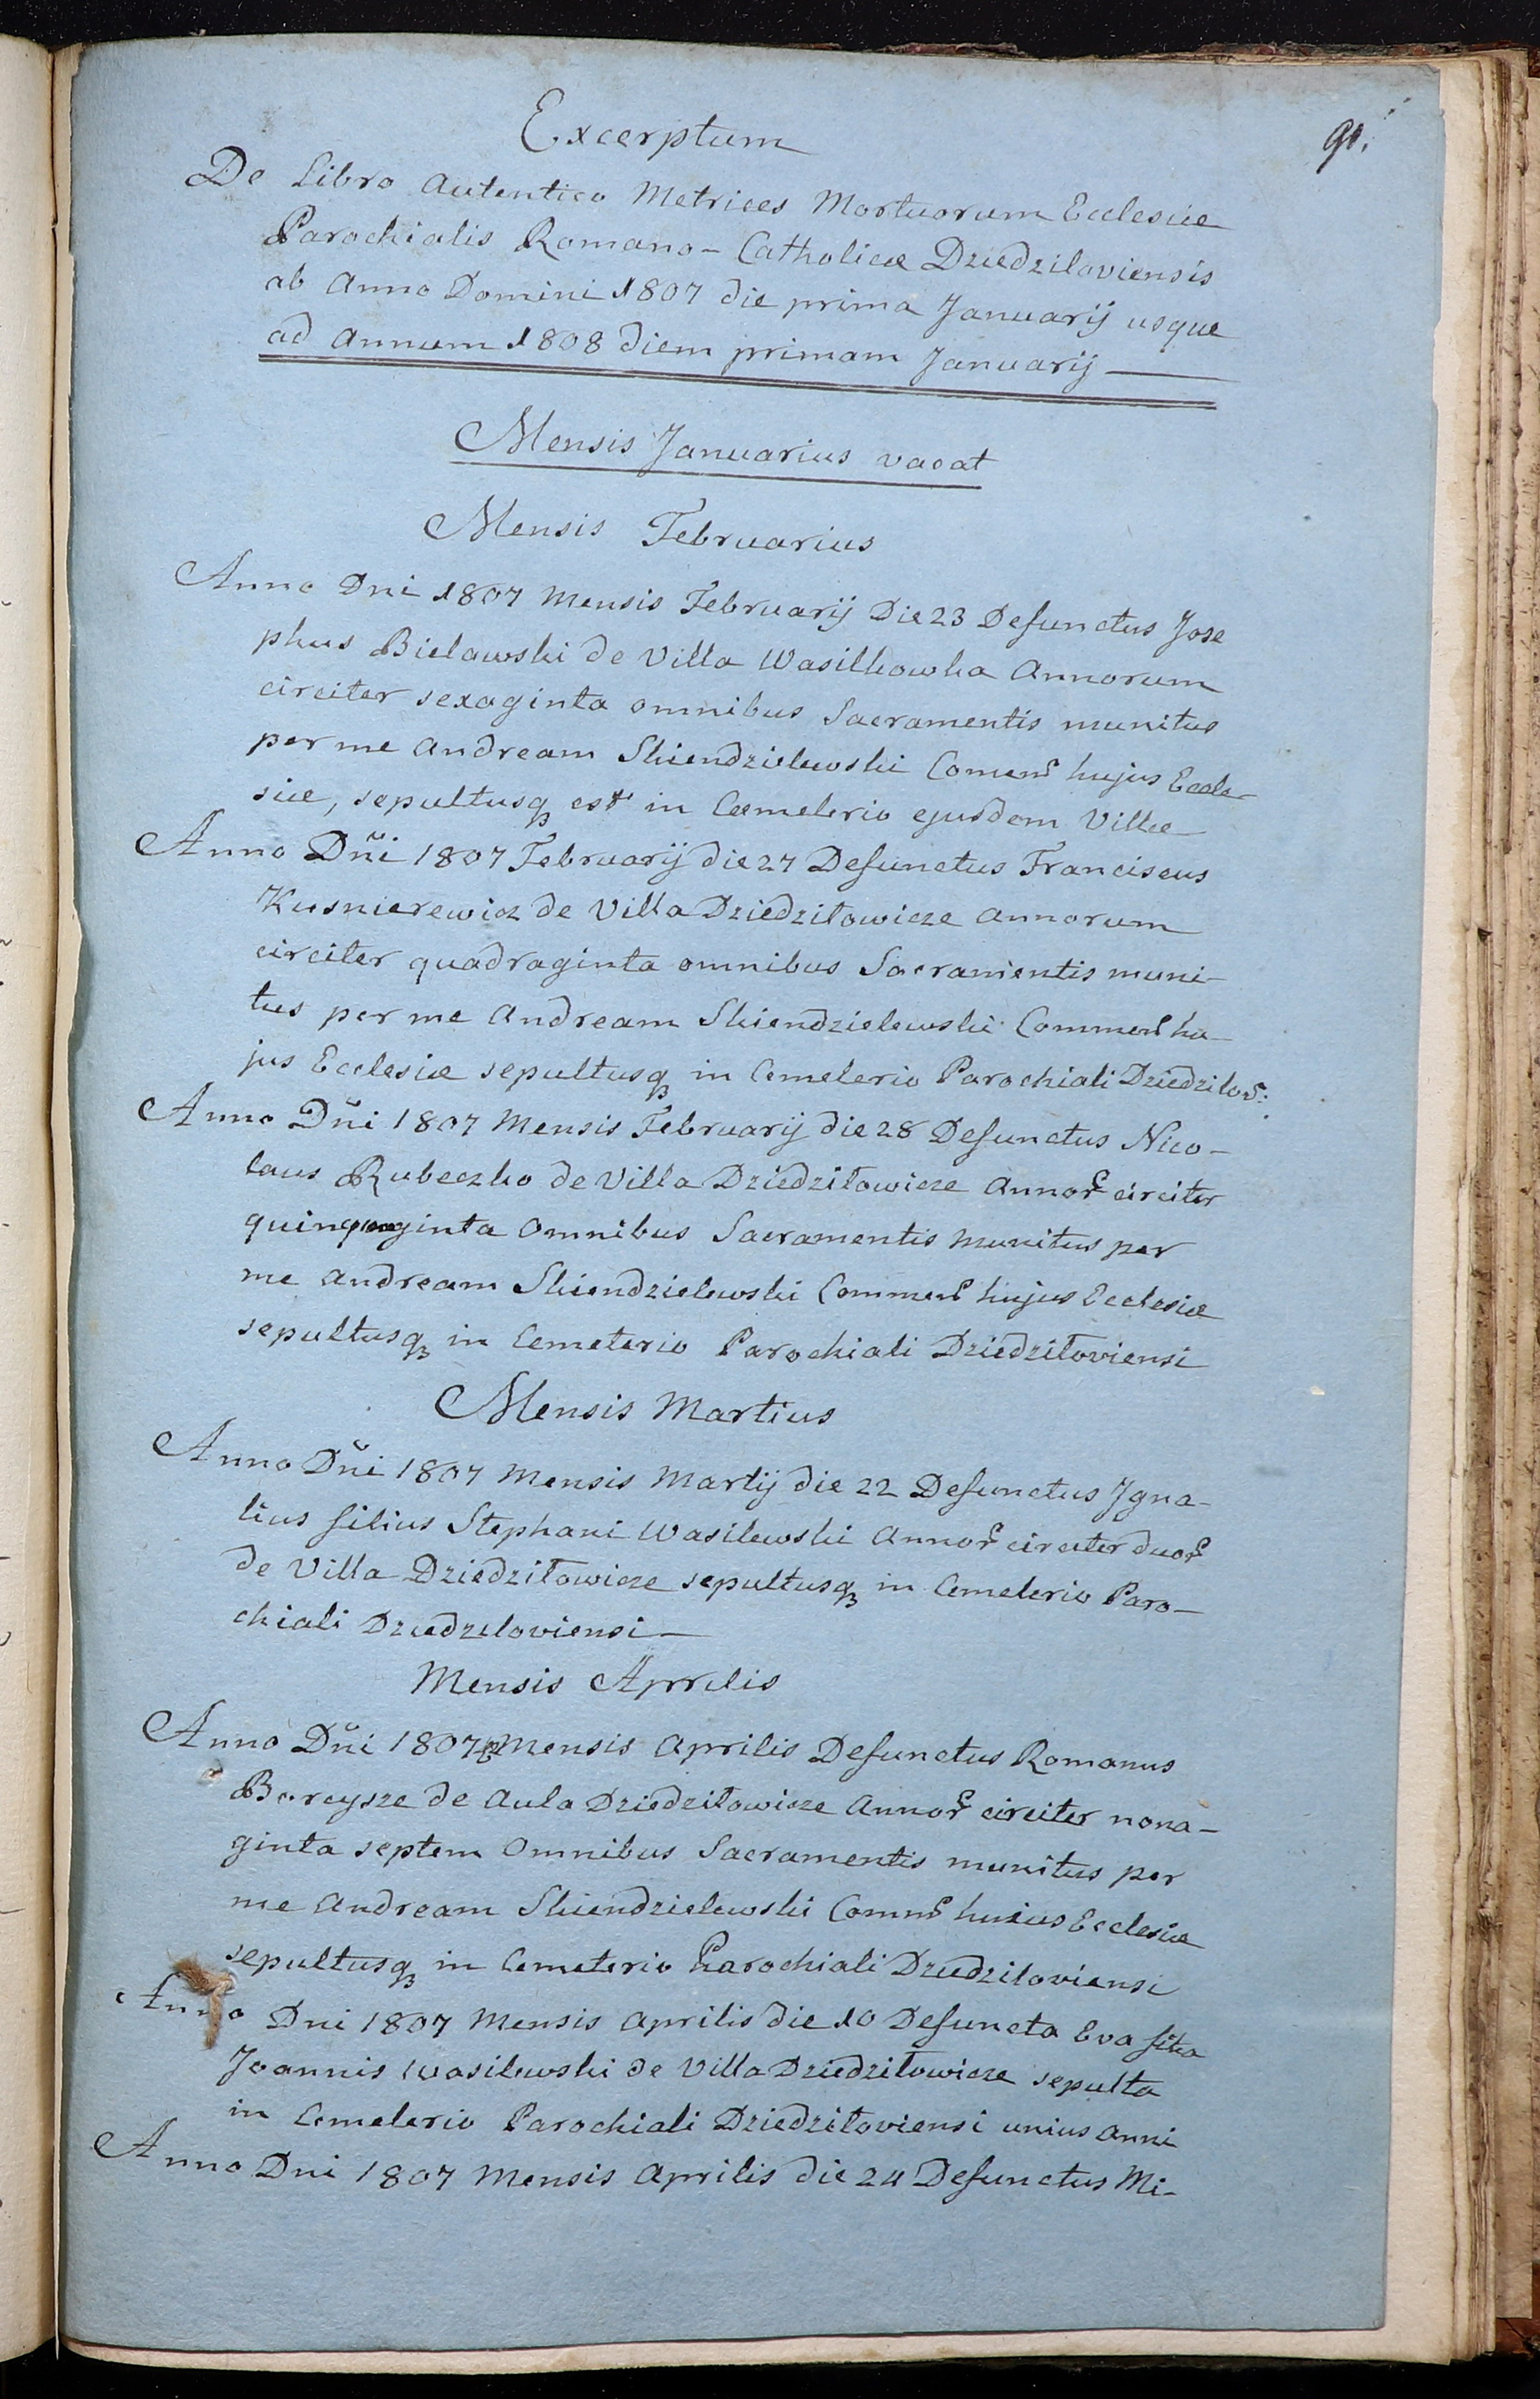 91.
Excerptum
De Libro Autentico Metrices Mortuorum Ecclesiæ
Parochialis Romano-Catholicæ Dziedziloviensis
ab Anno Domini 1807 die prima Januarij usque
ad Annum 1808 diem primam Januarij
Mensis Januarius vacat
Mensis Februarius
Anno Dni 1807 Mensis Februarij Die 23 Defunctus Jose
phus Bielawski de Villa Wasilkowka Annorum
circiter sexaginta omnibus Sacramentis munitus
per me Andream Skiendzielewski Comenꝭ hujus Eccle-
siæ, sepultusqꝫ est in Cæmeterio ejusdem Villæ
Anno Dñi 1807 Februarij die 27 Defunctus Franciscus
Kusnierewicz de Villa Dziedziłowicze Annorum
circiter quadraginta omnibus Sacramentis muni-
tus per me Andream Skiendzielewski Commenꝭ hu-
jus Ecclesiæ sepultusqꝫ in Cemeterio Parochiali Dziedzilovꝭ:
Anno Dñi 1807 Mensis Februarij die 28 Defunctus Nico-
laus Rubeczko de Villa Dziedziłowicze Annorꝭ circiter
quinquaginta Omnibus Sacramentis Munitus per
me Andream Skiendzielewski Commenꝭ hujus Ecclesiæ
sepultusqꝫ in Cemeterio Parochiali Dziedziłoviensi
Mensis Martius
Anno Dñi 1807 Mensis Martij die 22 Defunctus Jgna-
tius filius Stephani Wasilewski Annorꝭ circiter duorꝭ
de Villa Dziedziłowicze sepultusqꝫ in Cemeterio Paro-
chiali Dziedziloviensi
Mensis Aprilis
Anno Dñi 1807 Mensis Aprilis Defunctus Romanus
de Aula Dziedziłowicze Annorꝭ circiter nona-
ginta septem Omnibus Sacramentis munitus per
me Andream Skiendzielewski Commꝭ huius Ecclesiæ
sepultusqꝫ in Cemeterio Parochiali Dziedziloviensi
Anno Dni 1807 Mensis Aprilis die 10 Defuncta Eva filia
Joannis Wasilewski de Villa Dziedziłowicze sepulta
in Cemeterio Parochiali Dziedziłoviensi unius Anni
Anno Dni 1807 Mensis Aprilis die 24 Defunctus Mi-